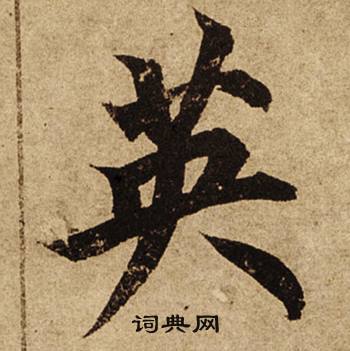 英
词典网